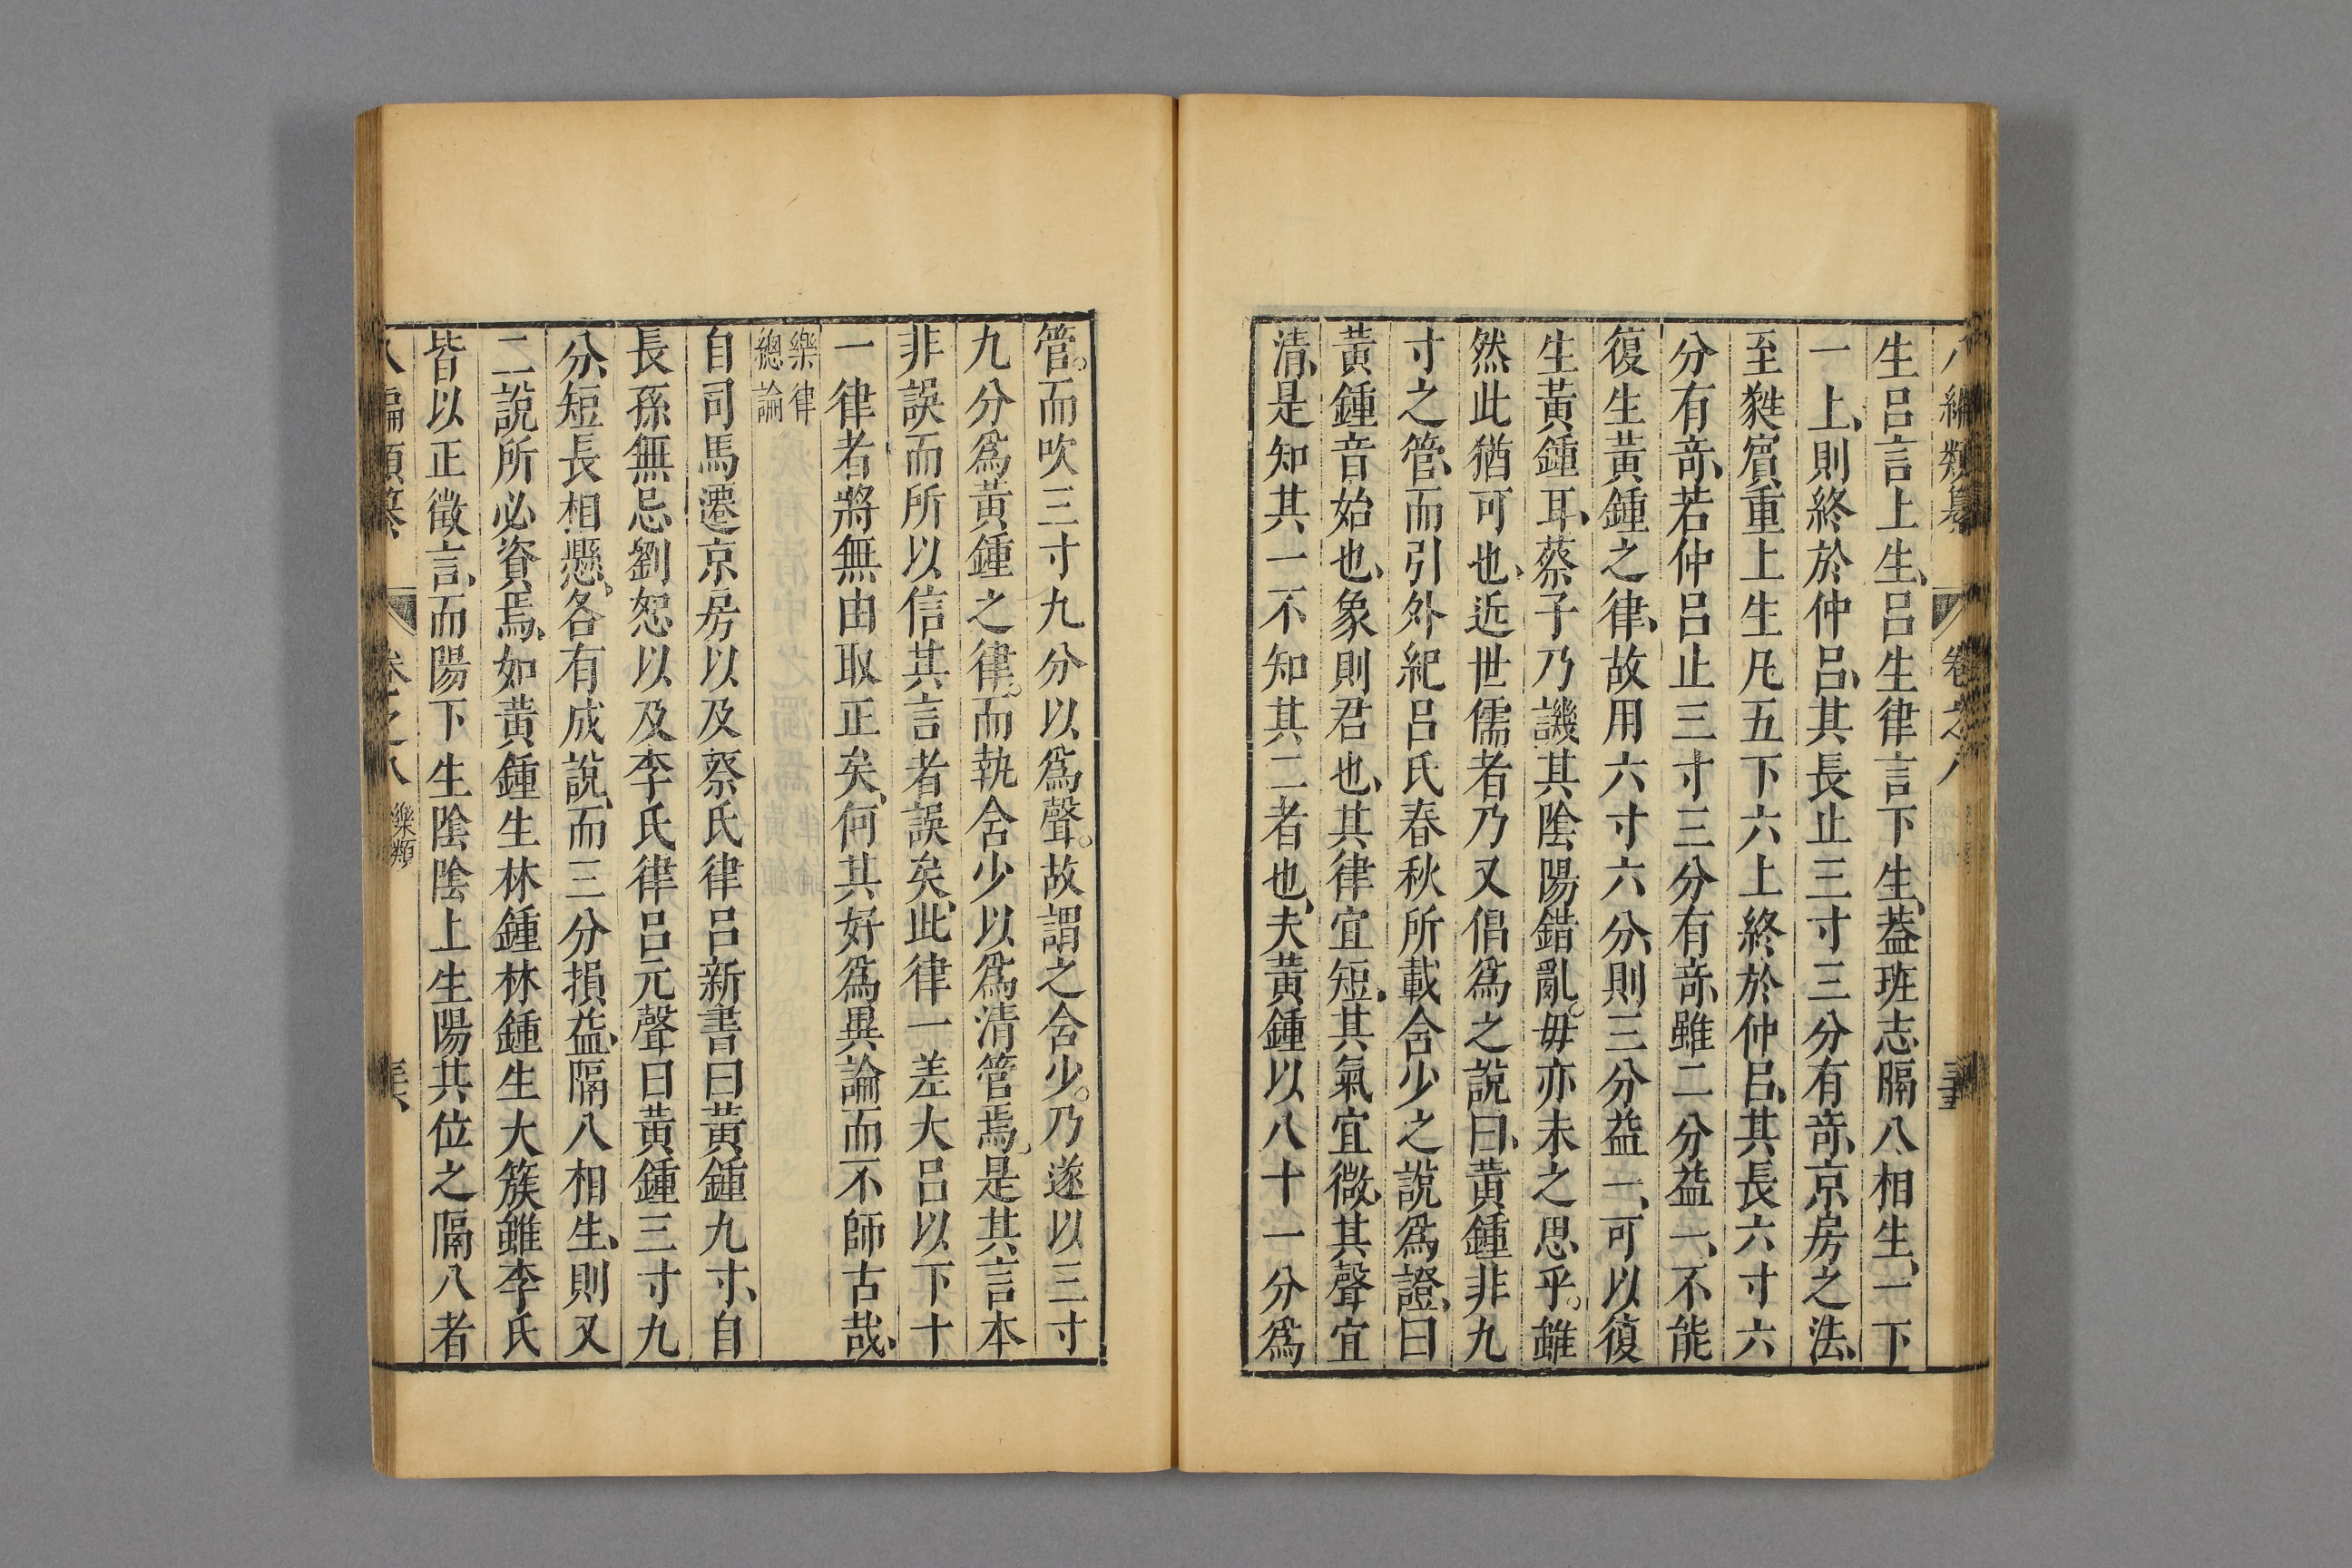 八編類纂 卷之八
生呂言上生、呂生律言下生、蓋班志隔八相生、一下
一上、則終於仲呂、其長止三寸三分有竒、京房之法、
至㽔賔重上生凡五下六上終於仲呂、其長六寸六
分有竒、若仲呂止三寸三分有竒、雖二分益一、不能
復生黃鍾之律、故用六寸六分、則三分益一、可以復
生黃鍾耳、蔡子乃譏其陰陽錯亂。毋亦未之思乎。雖
然此猶可也、近世儒者乃又倡爲之說曰、黃鍾非九
寸之管、而引外紀呂氏春秋所載含少之說爲證、曰
黃鍾音始也、象則君也、其律宜短、其氣宜微、其聲宜
清、是知其一不知其二者也、夫黃鍾以八十一分爲
管。而吹三寸九分以爲聲。故謂之含少。乃遂以三寸
九分爲黃鍾之律。而執含少以爲清管焉。是其言本
非誤而所以信其言者誤矣、此律一差大呂以下十
一律者、將無由取正矣、何其好爲異論而不師古哉、
樂律
總論
自司馬遷京房以及蔡氏律呂新書曰黃鍾九寸、自
長孫無忌劉恕以及李氏律呂元聲曰黃鍾三寸九
分、短長相懸、各有成說、而三分損益、隔八相生、則又
二說所必資焉、如黃鍾生林鍾林鍾生大簇雖李氏
皆以正徵言、而陽下生陰陰上生陽共位之隔八者
八編類纂 卷之八 樂類